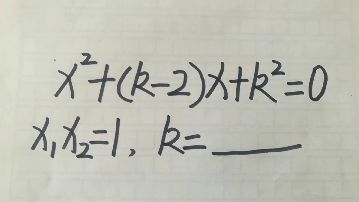 x²+(k-2)x+k²=0
x₁x₂=1, k=____